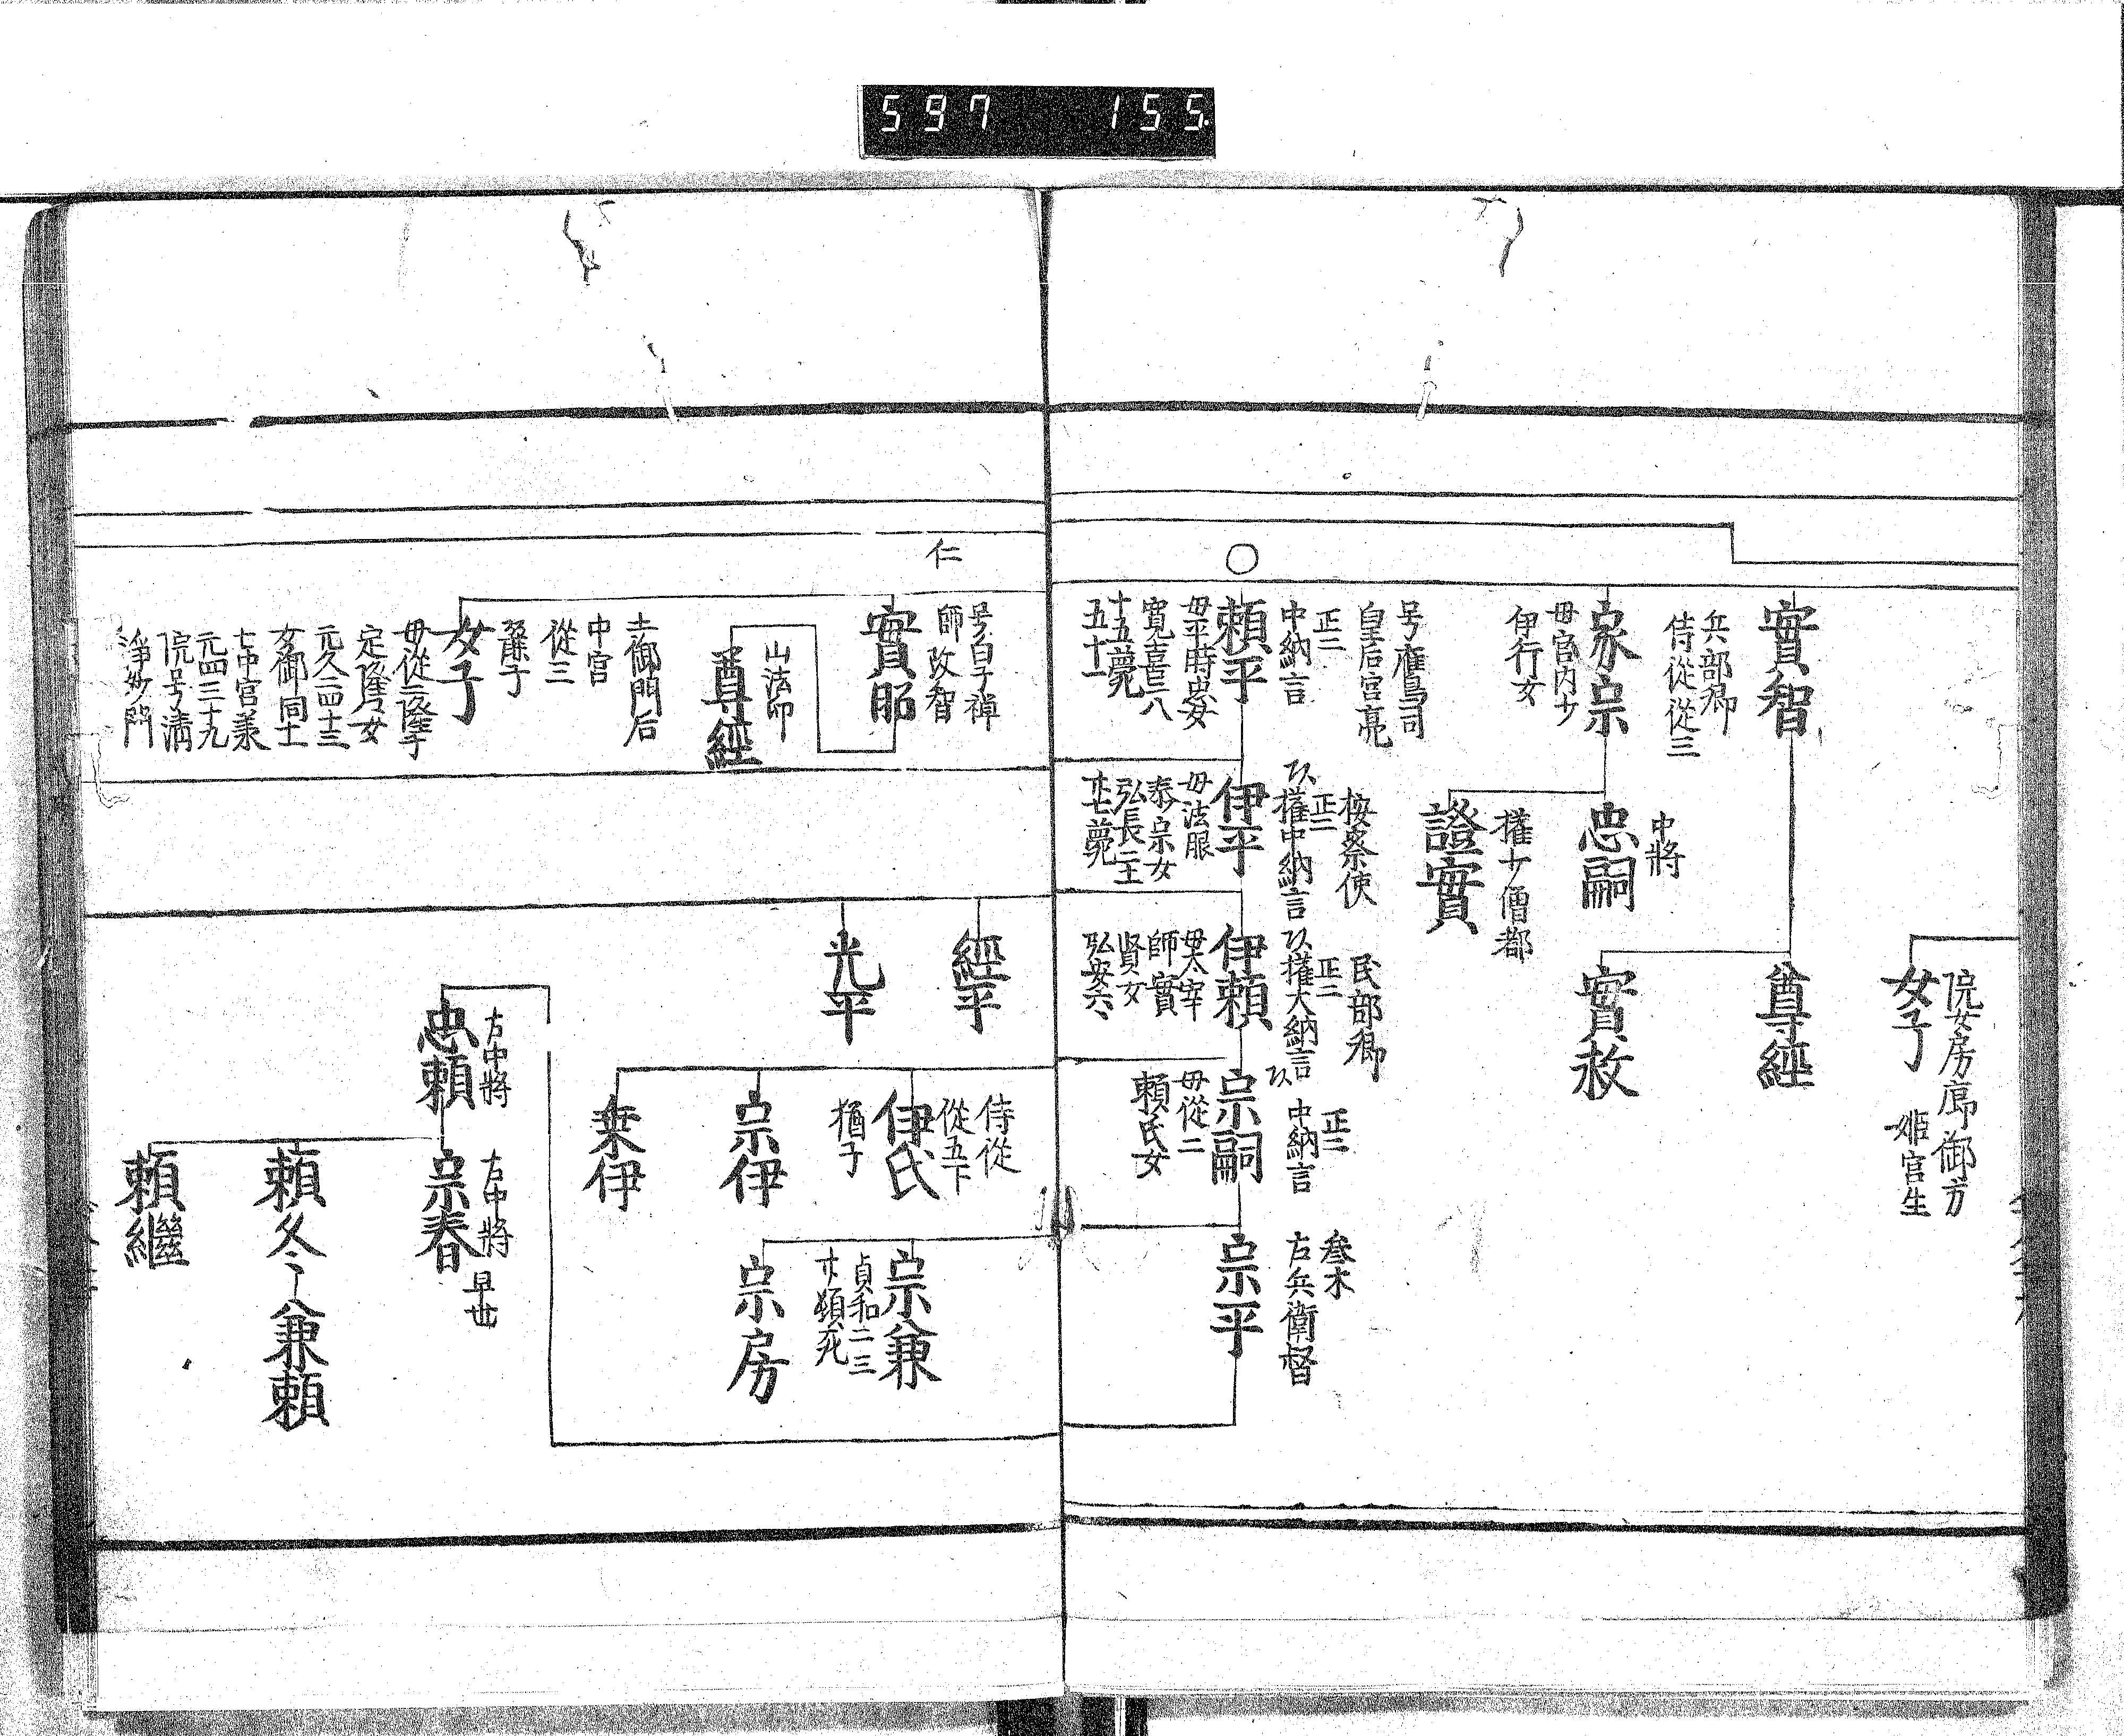 597 155
院女房廊御方
姫宮生
女子
實智
尊經
實救
兵部卿
侍從從三
家宗
母宮内少
伊行女
中將
忠嗣
權少僧都
證實
号鷹司
皇后宮亮
正二
中納言
頼平
母平時忠女
寛喜二八
十五薨
五十一
按察使
正二
权中納言
伊平
母法眼
泰宗女
弘長二
薨
民部卿
正二
權大納言
伊頼
母太宰
師實
賢女
弘安六
正二
中納言
宗嗣
母從二
頼氏女
叅木
右兵衛督
宗平
仁
号白子禅
師改智
實昭
山法印
尊經
土御門后
中宮
從三
麗子
女子
母從二隆子
定隆女
元久二四十三
女御同十
七中宮兼
元四三十九
院号淸
淨妙門
經平
光平
侍從
從五下
伊氏
猶子
宗伊
兼伊
宗兼
貞和二三
頓死
宗房
右中將
忠頼
右中將
早世
宗春
頼冬
兼頼
頼繼